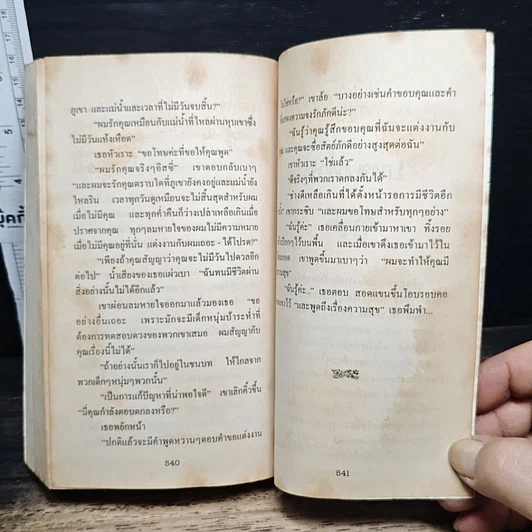 ภูเขา และแม่น้ำและเวลาที่ไม่มีวันจบสิ้น?"
"ผมรักคุณเหมือนกับแม่น้ำที่ไหลผ่านหุบเขาซึ่ง
ไม่มีวันแห้งเหือด"
เธอหัวเราะ "ขอโทษค่ะที่ขอให้คุณพูด"
"ผมรักคุณจริงๆอีสซี่" เขาตอบกลับเบาๆ
"และผมจะรักคุณตราบใดที่ภูเขายังคงอยู่และแม่น้ำยัง
ไหลริน เวลาทุกวันดูเหมือนจะไม่สิ้นสุดสำหรับผม
เมื่อไม่มีคุณ และทุกค่ำคืนก็ว่างเปล่าเหลือเกินเมื่อ
ปราศจากคุณ ทุกๆลมหายใจของผมไม่มีความหมาย
เมื่อไม่มีคุณอยู่ที่นั่น แต่งงานกับผมเถอะ - ได้โปรด?"
"เพียงถ้าคุณสัญญาว่าคุณจะไม่มีวันไปดวลอีก
ต่อไป" น้ำเสียงของเธอแผ่วเบา "ฉันทนมีชีวิตผ่าน
สิ่งอย่างนั้นไม่ได้อีก"
เขาผ่อนลมหายใจออกมาแล้วมองเธอ "ขอ
อย่างอื่นเถอะ เพราะมักจะมีเด็กหนุ่มบ้าระห่ำที่
ต้องการทดสอบดวงของพวกเขาเสมอ ผมสัญญากับ
คุณเรื่องนี้ไม่ได้"
"ถ้าอย่างนั้นเราก็ไปอยู่ในชนบท ให้ไกลจาก
พวกเด็กๆหนุ่มๆพวกนั้น"
"เป็นการแก้ปัญหาที่น่าพอใจดี" เขาเลิกคิ้วขึ้น
"นี่คุณกำลังตอบตกลงหรือ?"
เธอพยักหน้า
"ปกติแล้วจะมีคำพูดหวานๆตอบคำขอแต่งงาน
540
เขาล้อ "บางอย่างเช่นคำขอบคุณและคำ
แสดงความจงรักภักดีน่ะ?"
"ฉันรู้ว่าคุณรู้สึกขอบคุณที่ฉันจะแต่งงานกับ
คุณ และคุณจะซื่อสัตย์ภักดีอย่างสูงสุดต่อฉัน"
เขาหัวเราะ "ใช่แล้ว"
"ดีจริงๆที่พวกเราตกลงกันได้"
"ช่างดีเหลือเกินที่ได้ตั้งหน้ารอการมีชีวิตอีก
เขากระซิบ "และผมขอโทษสำหรับทุกๆอย่าง"
"ฉันรู้ค่ะ" เธอเคลื่อนกายเข้ามาหาเขา ทิ้งรอย
เลือกไว้บนพื้น และเมื่อเขาดึงเธอเข้ามาไว้ใน
เขาพูดขึ้นมาเบาๆว่า "ผมจะทำให้คุณมี
"ฉันรู้ค่ะ.." เธอตอบ สอดแขนขึ้นโอบรอบคอ
ไว้ "และพูดถึงเรื่องความสุข" เธอพึมพำ...
541